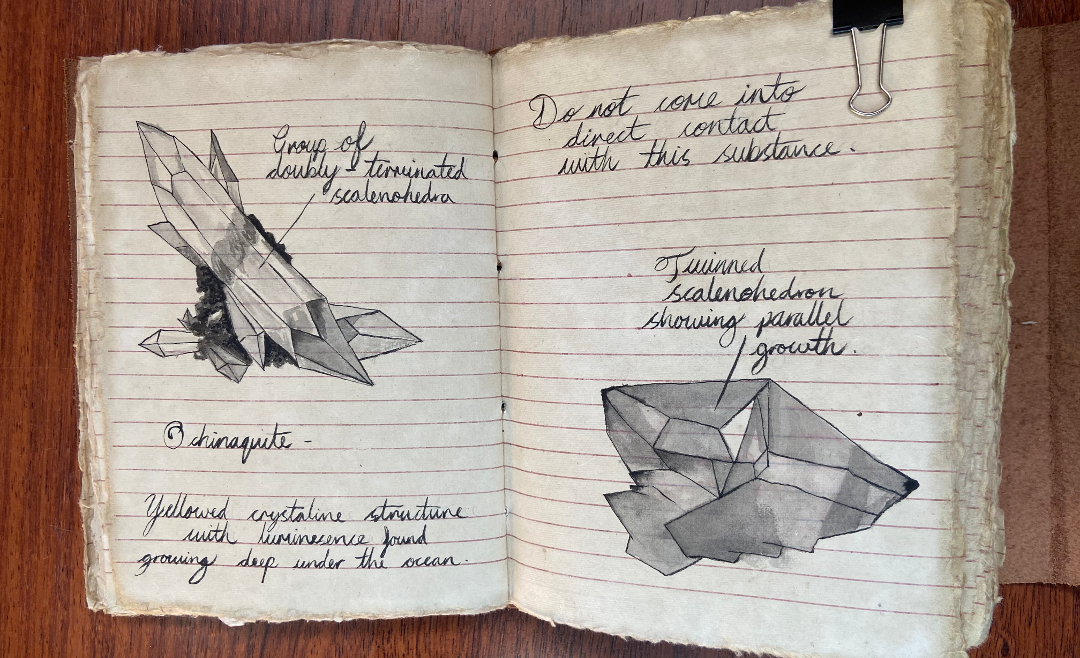 Group of
doubly-terminated
scalenohedra
Ochinaquite -
Yellowed crystaline structure
with luminesence found
growing deep under the ocean.
Do not come into
direct contact
with this substance.
Twinned
scalenohedron
showing parallel
growth.